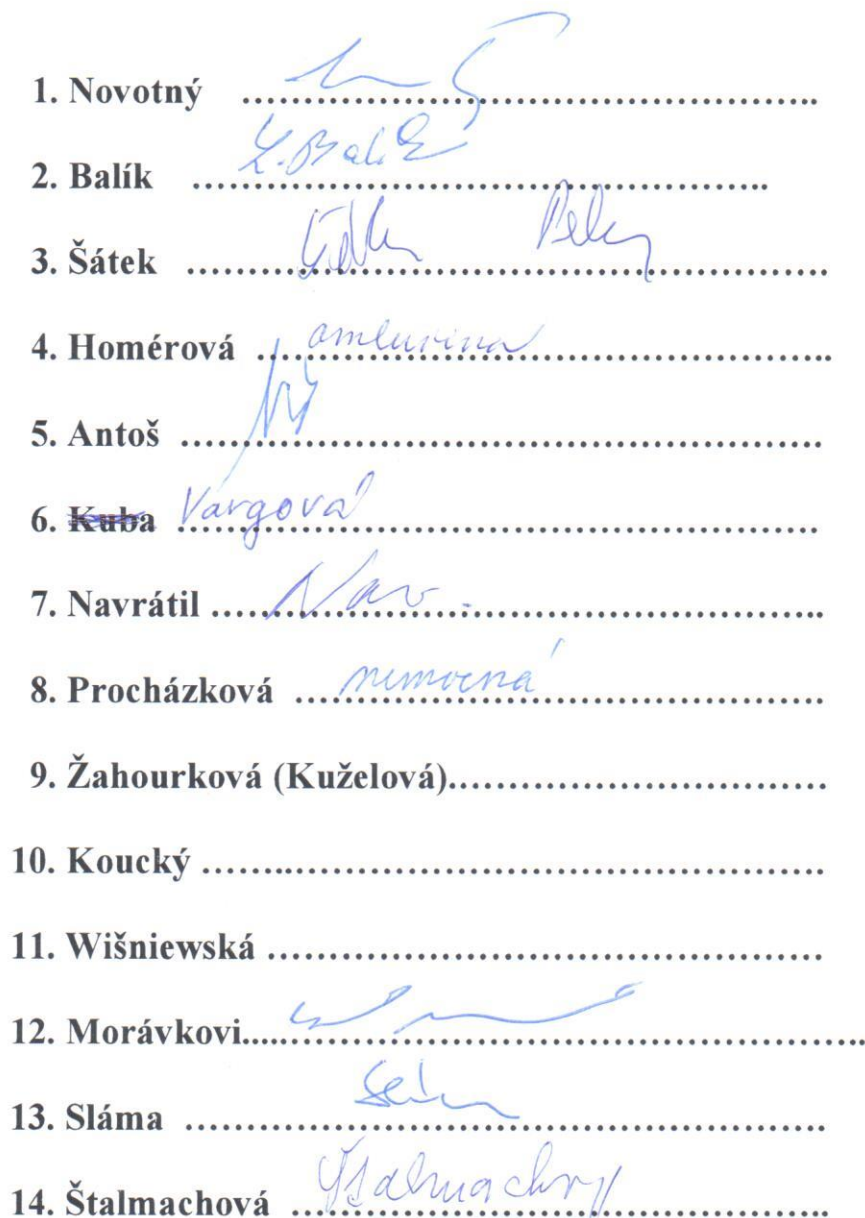 1. Novotný ..........
2. Balík .......... L. Balík
3. Šátek ..........
4. Homérová .......... omluvena
5. Antoš ..........
6. Kuba Vargová ..........
7. Navrátil .......... Nav.
8. Procházková .......... nemocná
9. Žahourková (Kuželová)..........
10. Koucký ..........
11. Wišniewská ..........
12. Morávkovi..........
13. Sláma ..........
14. Štalmachová ..........